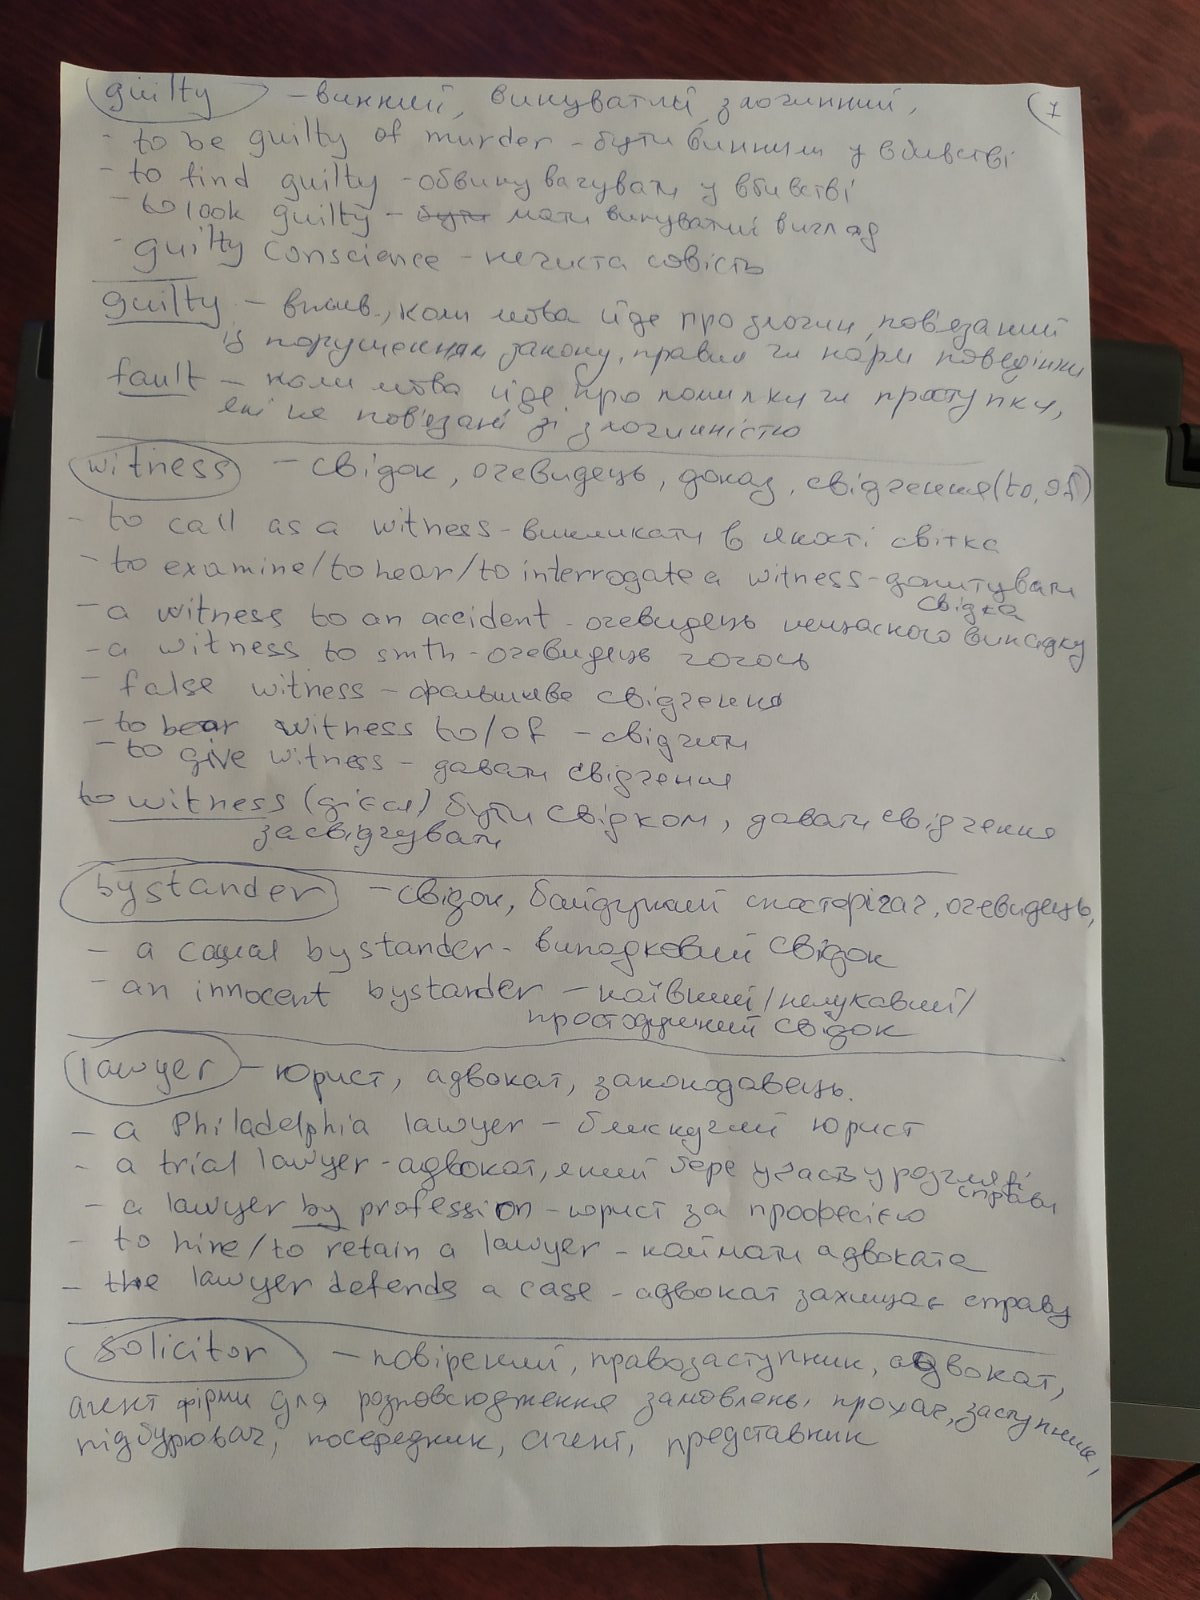 guilty - винний, винуватий, злочинний,
1
- to be guilty of murder - бути винним у вбивстві
- to find guilty - обвинувачувати у вбивстві
- to look guilty - бути мати винуватий вигляд
- guilty conscience - нечиста совість
guilty - вжив., коли мова йде про злочин, пов'язаний
із порушенням закону, правил чи норм поведінки
fault - коли мова йде про помилку чи проступки,
які не пов'язані зі злочинністю
witness - свідок, очевидець, доказ, свідчення (to, of)
- to call as a witness - викликати в якості світка
- to examine/to hear/to interrogate a witness - допитувати
свідка
- a witness to an accident - очевидець нещасного випадку
- a witness to smth - очевидець чогось
- false witness - фальшиве свідчення
- to bear witness to/of - свідчити
- to give witness - давати свідчення
to witness (дієсл) бути свідком, давати свідчення
засвідчувати
bystander - свідок, байдужий спостерігач, очевидець,
- a casual bystander - випадковий свідок
- an innocent bystander - наївний/нелукавий/
простодушний свідок
lawyer - юрист, адвокат, законодавець.
- a Philadelphia lawyer - блискучий юрист
- a trial lawyer - адвокат, який бере участь у розгляді
справи
- a lawyer by profession - юрист за професією
- to hire/to retain a lawyer - наймати адвоката
- the lawyer defends a case - адвокат захищає справу
solicitor - повірений, правозаступник, адвокат,
агент фірми для розповсюдження замовлень, прохач, заступник,
підбурювач, посередник, агент, представник